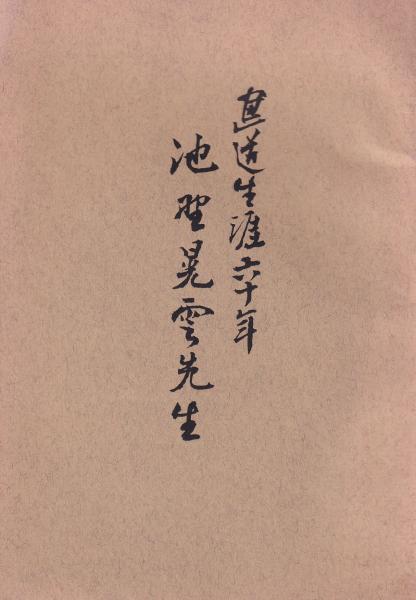 道生涯六十年
池野晃雲先生